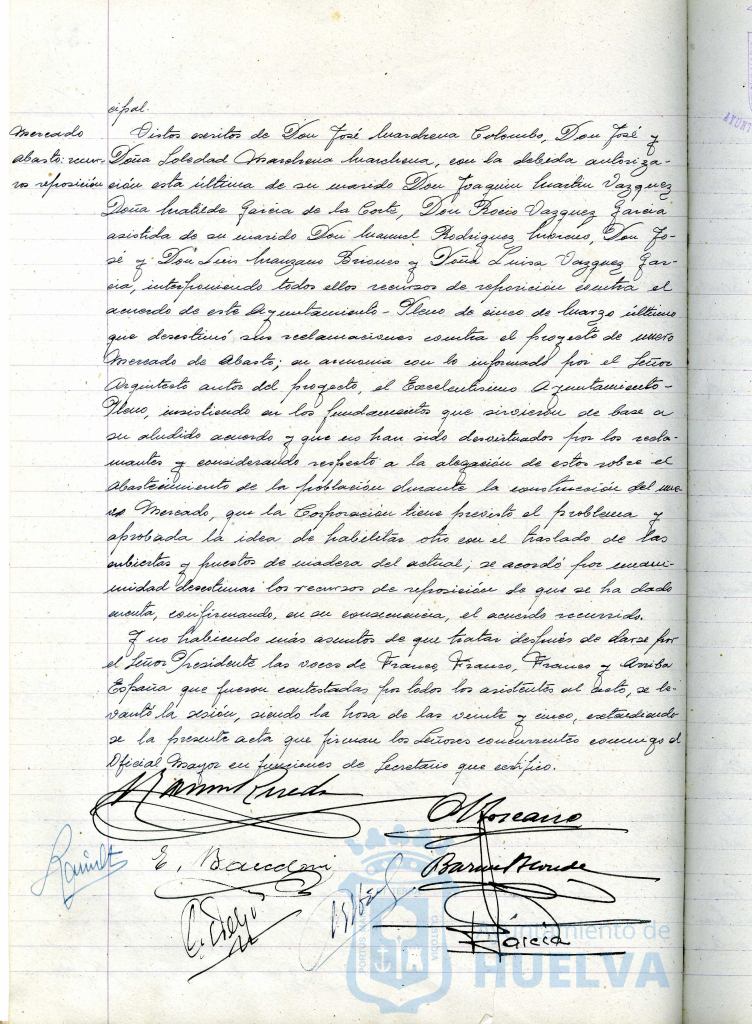 cipal.
Mercado
Abasto: recur-
sos reposición
Vistos escritos de Don José Marchena Colombo, Don José y
Doña Soledad Marchena Marchena, con la debida autoriza-
ción esta última de su marido Don Joaquin Martin Vazquez
Doña Matilde Garcia de la Corte, Don Rocio Vazquez Garcia
asistida de su marido Don Manuel Rodriguez Don Jo-
sé y Don Luis Manzano Briones y Doña Luisa Vazquez Gar-
cia, interponiendo todos ellos recursos de reposición contra el
acuerdo de este Ayuntamiento-Pleno de cinco de Marzo último
que desestimó sus reclamaciones contra el proyecto de nuevo
Mercado de Abasto; en armonia con lo informado por el Señor
Arquitecto autor del proyecto, el Excelentisimo Ayuntamiento-
Pleno, insistiendo en los fundamentos que sirvieron de base a
su aludido acuerdo y que no han sido desvirtuados por los recla-
mantes y considerando respecto a la alegación de estos sobre el
abastecimiento de la población durante la construcción del nue-
vo Mercado, que la Corporación tiene previsto el problema y
aprobada la idea de habilitar otro con el traslado de las
cubiertas y puestos de madera del actual; se acordó por unani-
midad desestimar los recursos de reposición de que se ha dado
cuenta, confirmando, en su consecuencia, el acuerdo recurrido.
Y no habiendo más asuntos de que tratar después de darse por
el Señor Presidente las voces de Franco, Franco, Franco y Arriba
España que fueron contestadas por todos los asistentes al acto, se le-
vantó la sesión, siendo la hora de las veinte y cinco, extendiendo
se la presente acta que firman los Señores concurrentes conmigo el
Oficial Mayor en funciones de Secretario que certifico.
E.
Garcia
Ayuntamiento de
HUELVA